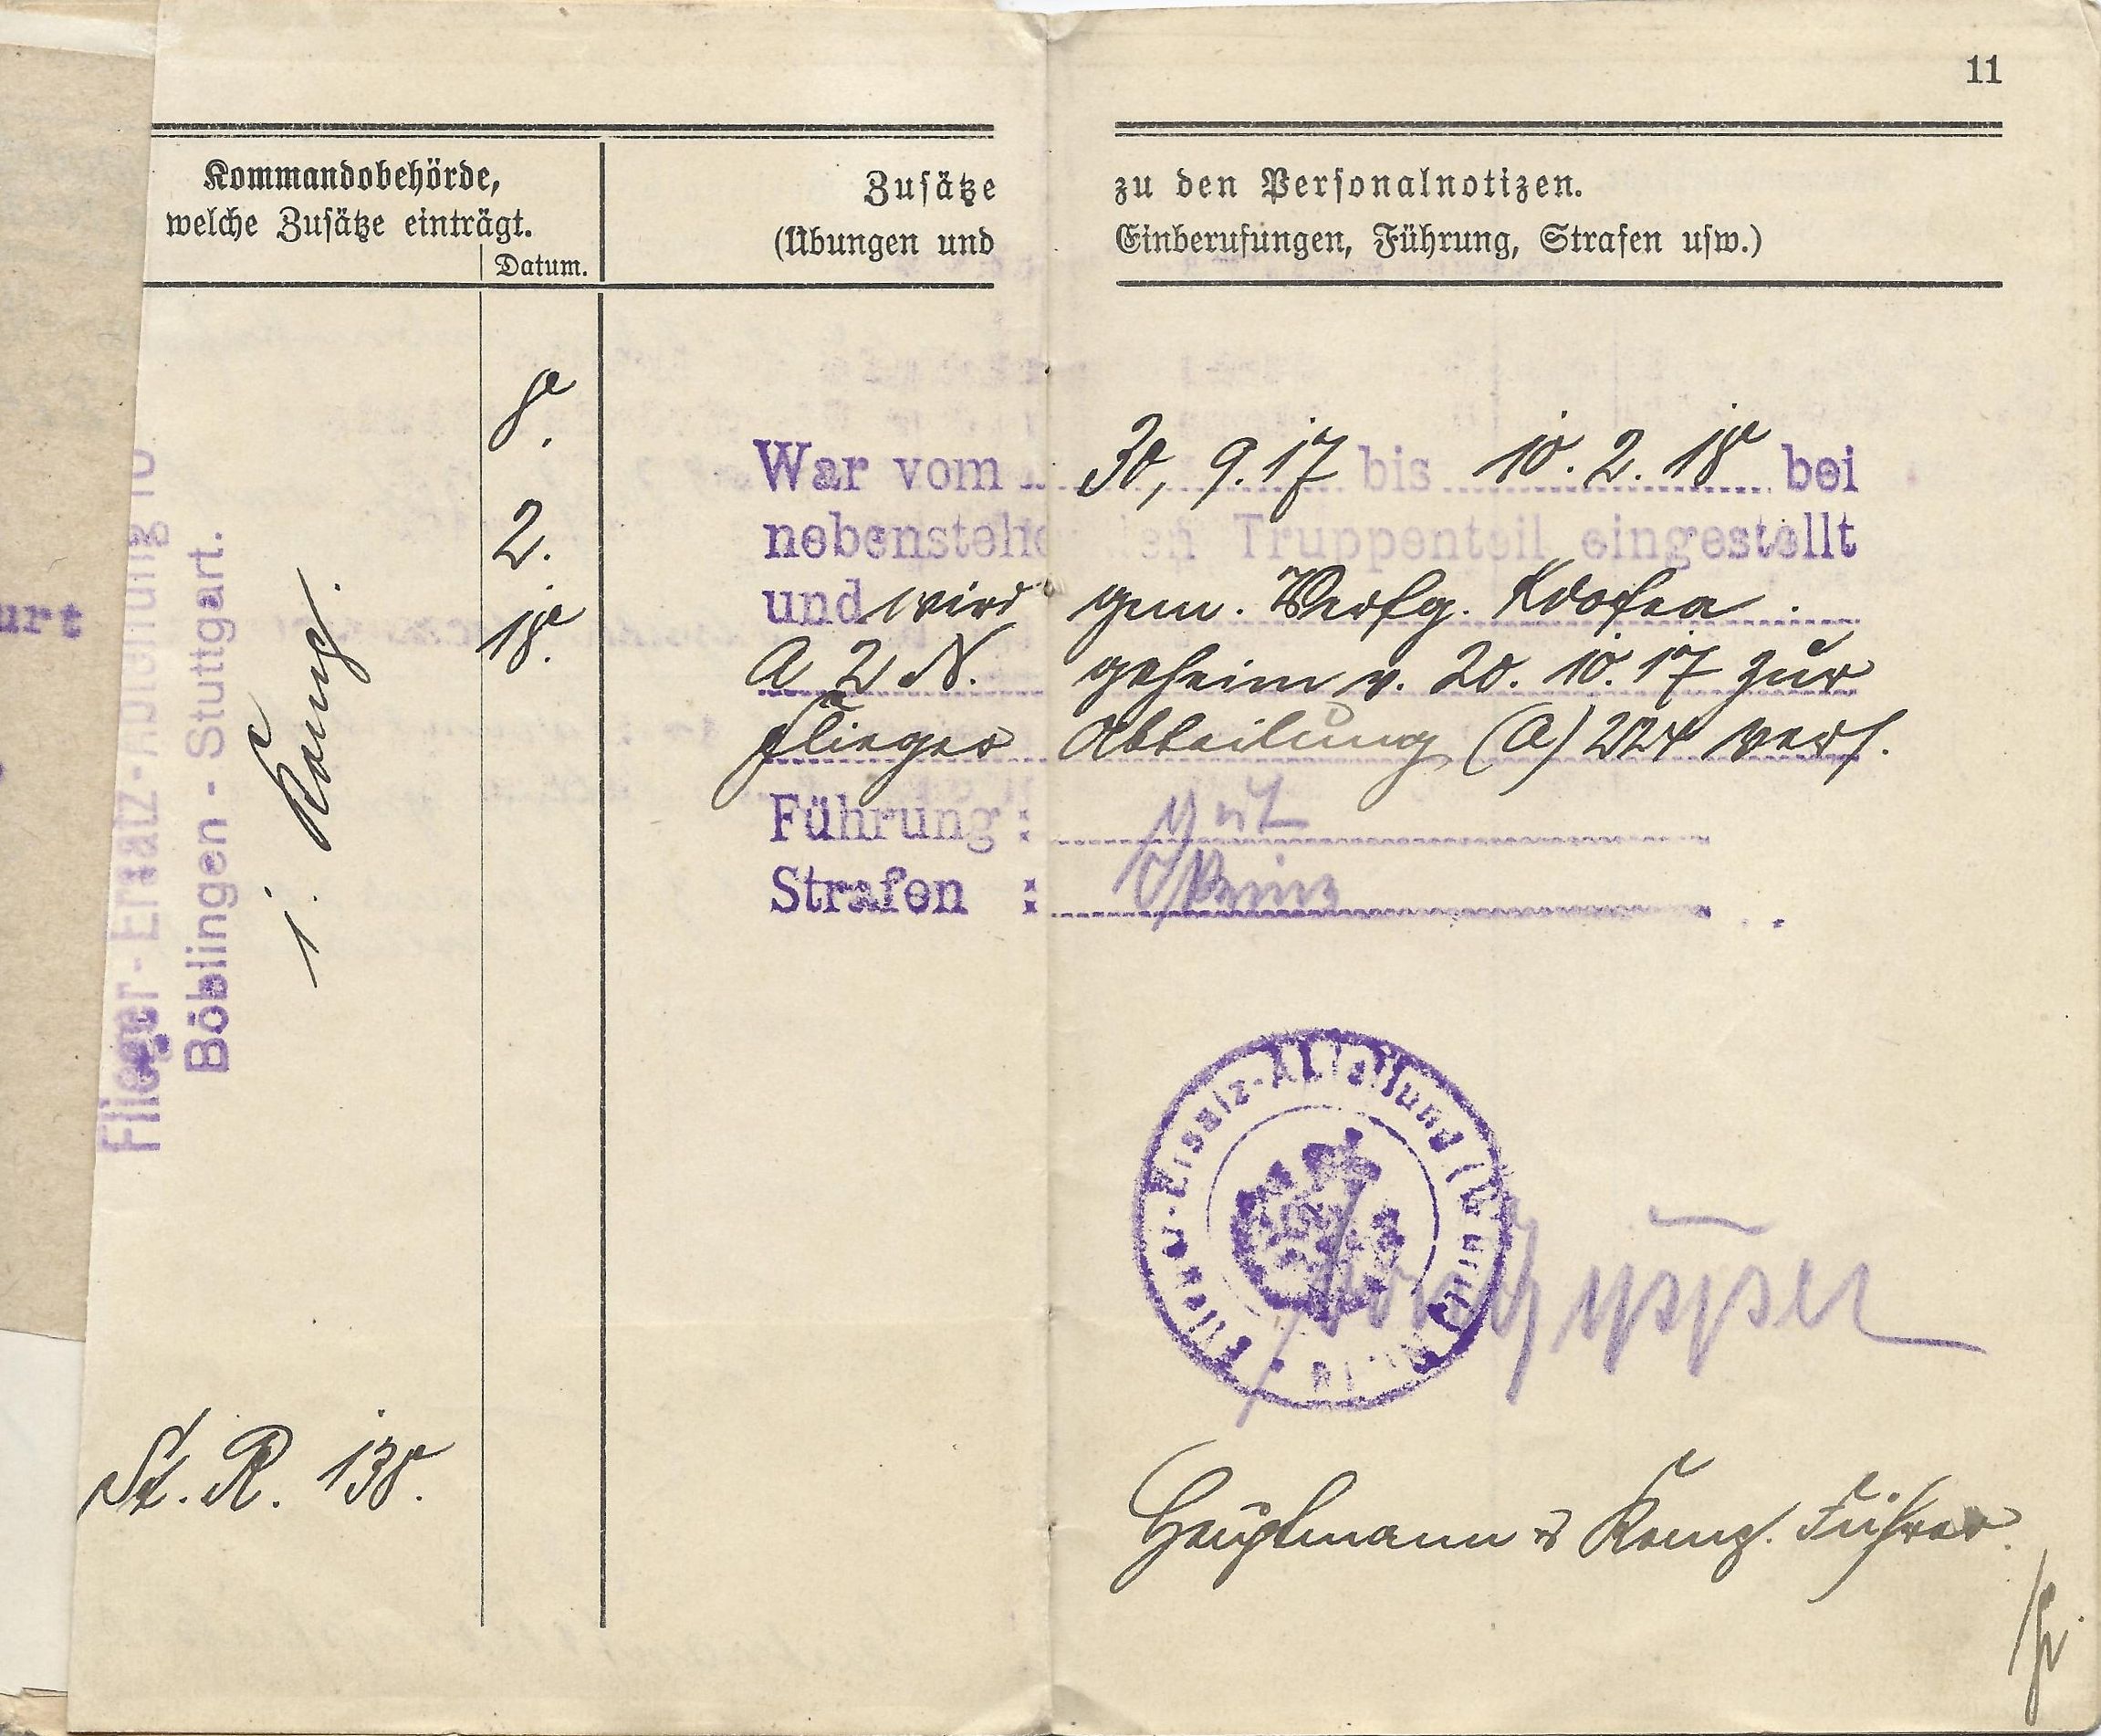 11
Kommandobehörde,
welche Zusätze einträgt.
Datum.
Zusätze
(Übungen und
zu den Personalnotizen.
Einberufungen, Führung, Strafen usw.)
urt
Flieger-Ersatz-Abteilung 10
Böblingen - Stuttgart.
1. Komp.
8.
2.
18.
War vom 30, 9. 17 bis 10. 2. 18 bei
nebenstehenden Truppenteil eingestellt
und wird gem. Verfg. Kdofea.
A 2 N. geheim v. 20. 10. 17 zur
Flieger Abteilung (A) 224 vers.
Führung: gut
Strafen : Keine
Flieger-Ersatz-Abteilung
St. R. 138.
Hauptmann u Komp. Führer.